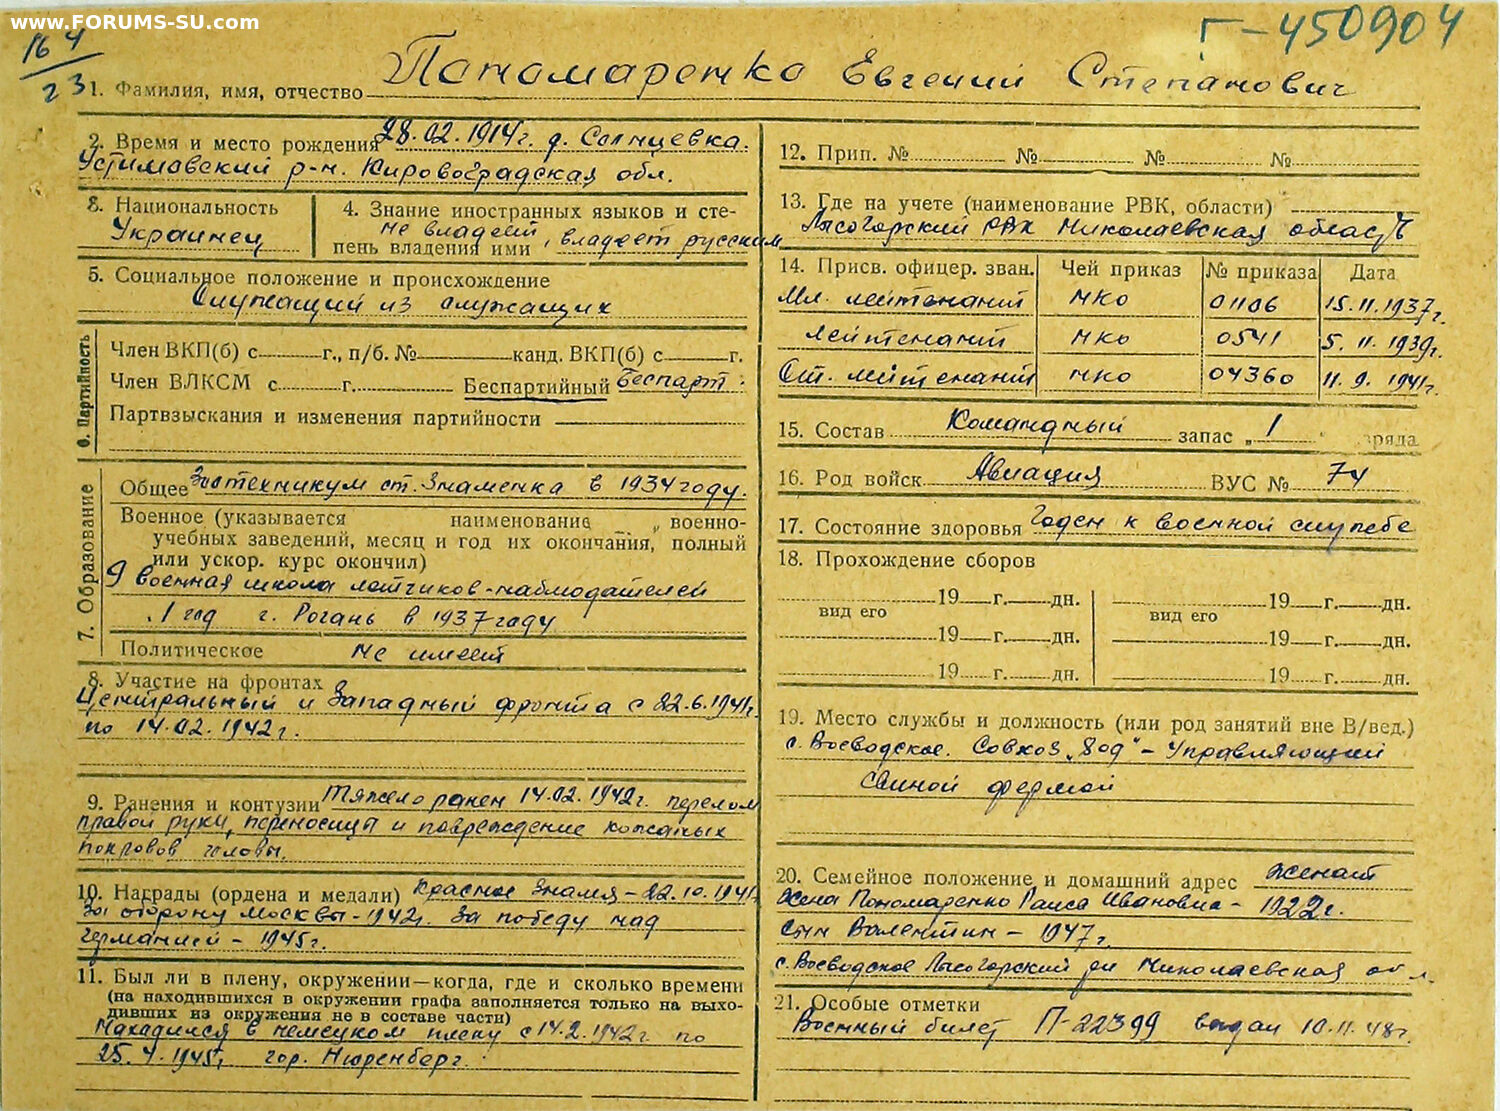 www.FORUMS-SU.com
164
23
Г-450904
1. Фамилия, имя, отчество Пономаренко Евгений Степанович
2. Время и место рождения 28.02.1914г. д. Солнцевка.
Устимовский р-н. Кировоградская обл.
3. Национальность
Украинец
4. Знание иностранных языков и сте-
не владеет, владеет русским
пень владения ими
5. Социальное положение и происхождение
Служащий из служащих
6. Партийность
Член ВКП(б) с г., п/б. № канд. ВКП(б) с г.
Член ВЛКСМ с г. Беспартийный беспарт.
Партвзыскания и изменения партийности
7. Образование
Общее Зоотехникум ст. Знаменка в 1934 году.
Военное (указывается наименование военно-
учебных заведений, месяц и год их окончания, полный
или ускор. курс окончил)
9 военная школа летчиков-наблюдателей
1 год г. Рогань в 1937 году
Политическое не имеет
8. Участие на фронтах
Центральный и Западный фронта с 22.6.1941г.
по 14.02.1942г.
9. Ранения и контузии Тяжело ранен 14.02.1942г. перелом
правой руки, переносица и повреждение кожаных
покровов головы.
10. Награды (ордена и медали) Красное Знамя - 22.10.1941
За оборону Москвы - 1942г. За победу над
Германией - 1945г.
11. Был ли в плену, окружении—когда, где и сколько времени
(на находившихся в окружении графа заполняется только на выхо-
дивших из окружения не в составе части)
Находился в немецком плену с 14.2.1942г. по
25.4.1945г. гор. Нюренберг.
12. Прип. № № № №
13. Где на учете (наименование РВК, области)
Лысогорский РВК Николаевская область
14. Присв. офицер. зван. Чей приказ № приказа Дата
Мл. лейтенант НКО 01106 15.11.1937г.
лейтенант НКО 0541 5.11.1939г.
Ст. лейтенант НКО 04360 11.9.1941г.
15. Состав Командный запас „1 ряда
16. Род войск Авиация ВУС № 74
17. Состояние здоровья Годен к военной службе
18. Прохождение сборов
19 г. дн. 19 г. дн.
вид его вид его
19 г. дн. 19 г. дн.
19 г. дн. 19 г. дн.
19. Место службы и должность (или род занятий вне В/вед.)
с. Воеводское. Совхоз - Управляющий
свиной фермой
20. Семейное положение и домашний адрес женат
Жена Пономаренко Раиса Ивановна - 1922г.
Сын Валентин - 1947г.
с. Воеводское Лысогорский р-н Николаевская обл.
21. Особые отметки
Военный билет П-22399 выдан 10.11.48г.